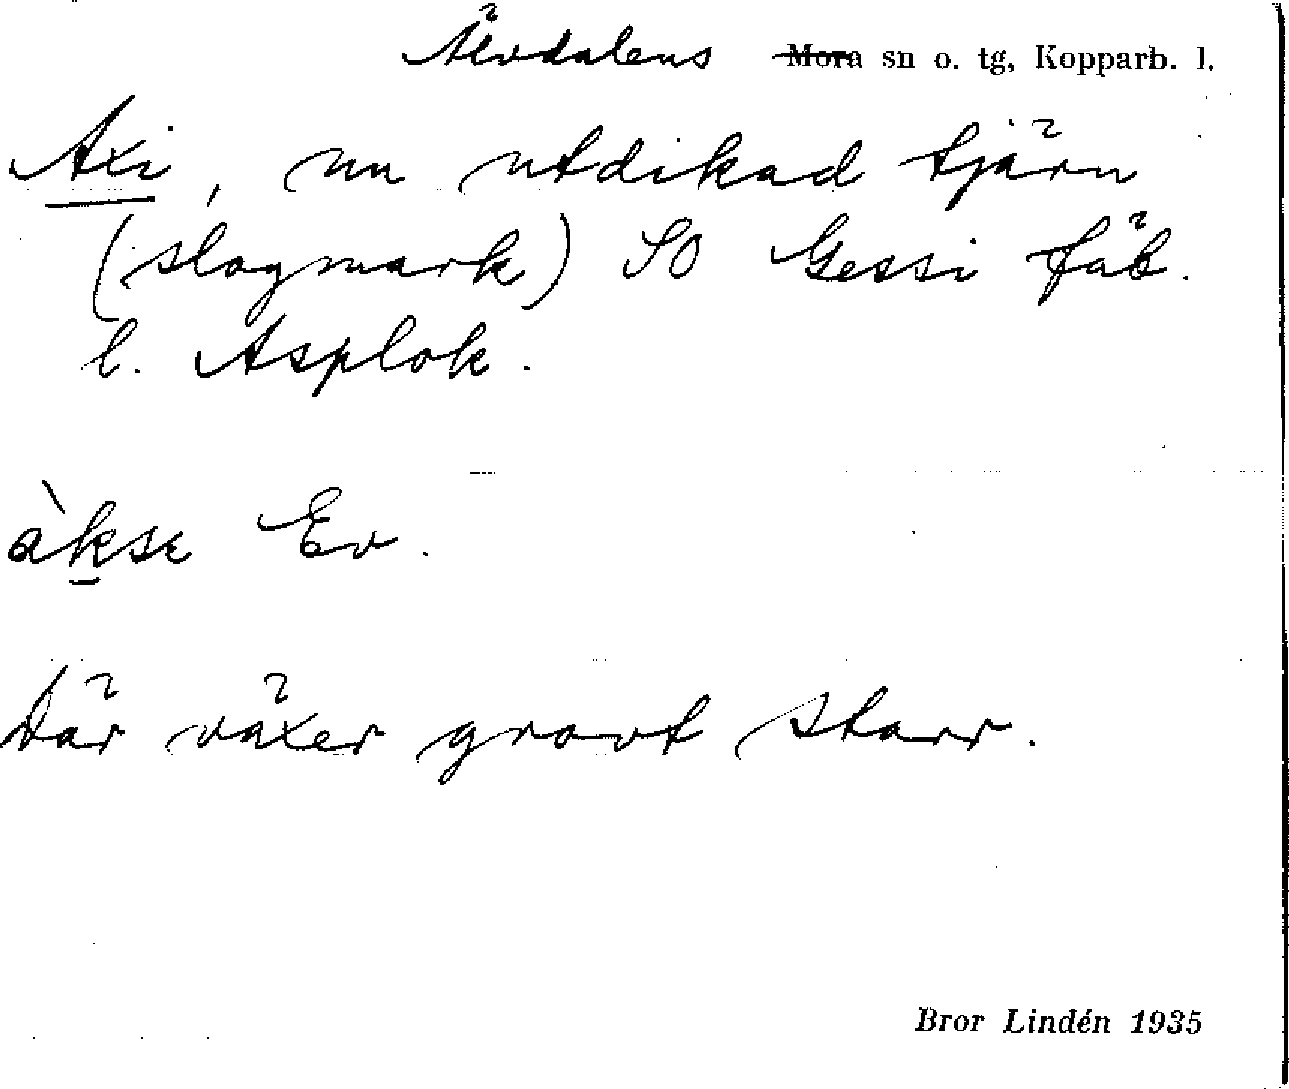 Älvdalens Mora sn o. tg, Kopparb. l.
Axi, nu utdikad tjärn
(slogmark) SO Gessi fäb.
l. Asplok.
àkse Ev.
Där växer grovt starr.
Bror Lindén 1935